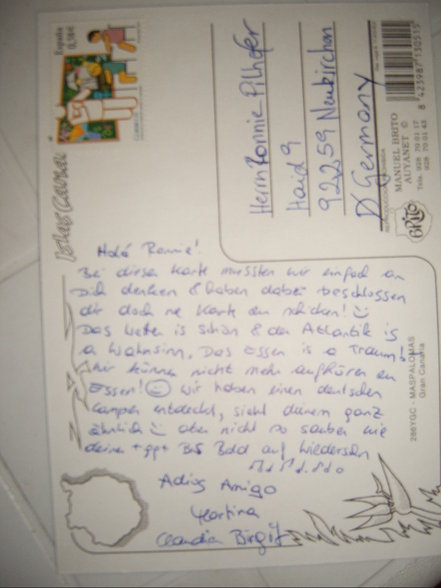 España
0,58€
CORREOS
Islas Canarias
Herrn Ronnie Pilhofer
Haid 9
92259 Neukirchen
D Germany
8 423987 130515
MANUEL BRITO
AUYANET ©
Telfs. 928 70 01 37
928 70 01 43
BRITO
286YGC - MASPALOMAS
Gran Canaria
Holá Ronnie!
Bei dieser Karte mussten wir einfach an
Dich denken & haben dabei beschlossen
dir doch ne Karte zu schicken! ☺
Das Wetter is schön & der Atlantik is
a Wahnsinn, Das Essen is a Traum!
Wir können nicht mehr aufhören zu
Essen! ☺ Wir haben einen deutschen
Camper entdeckt, sieht deinem ganz
ähnlich ☺ aber nicht so sauber wie
deiner Bis Bald auf Wiedersehn
Adios Amigo
Martina
Claudia Birgit